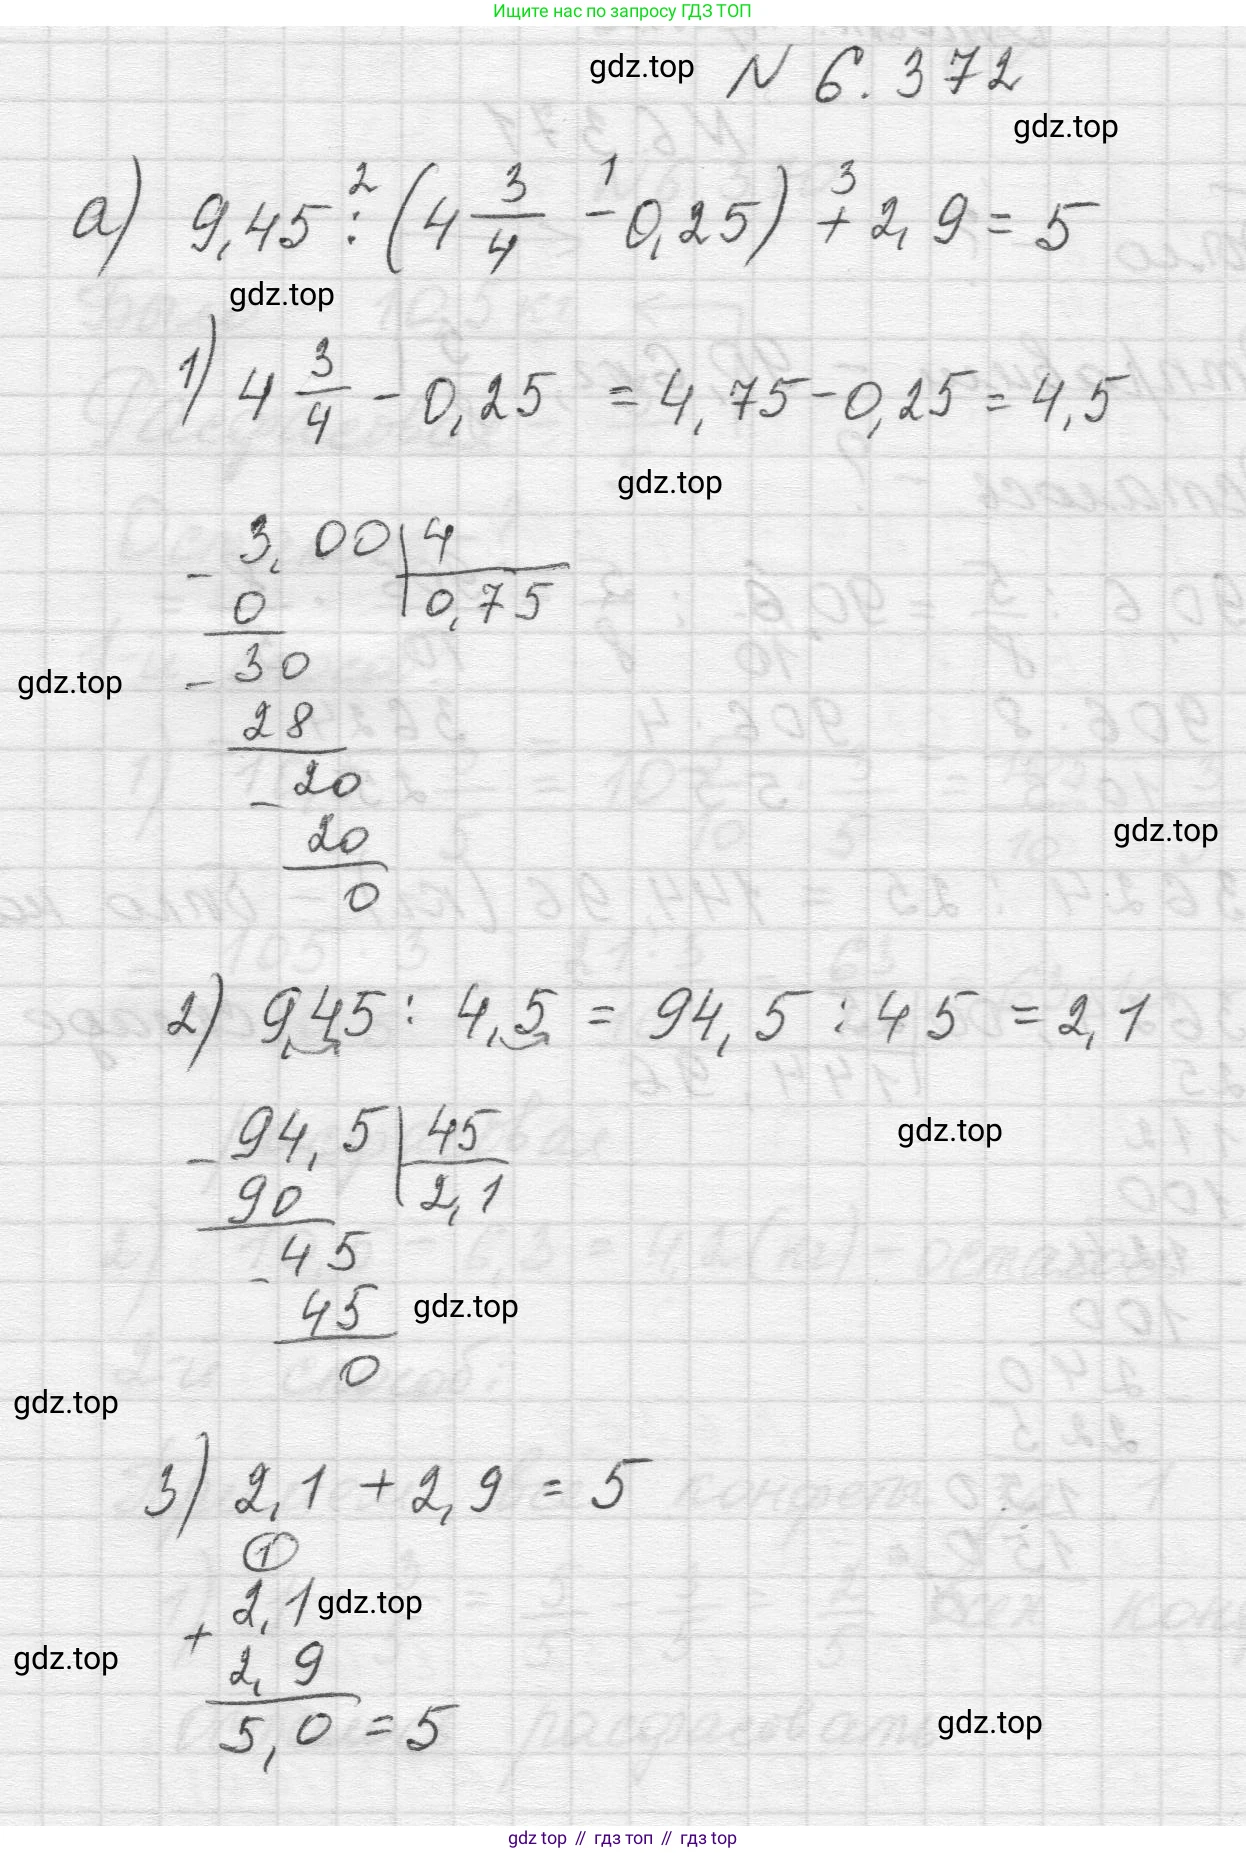 Ищите нас по запросу ГДЗ ТОП
gdz.top N 6.372
gdz.top
а) 9,45 :² (4 3/4 -¹ 0,25) +³ 2,9 = 5
gdz.top
1) 4 3/4 - 0,25 = 4,75 - 0,25 = 4,5
gdz.top
- 3,00 | 4
0 | 0,75
- 30
gdz.top
28
- 20
20
gdz.top
0
2) 9,45 : 4,5 = 94,5 : 45 = 2,1
- 94,5 | 45
gdz.top
90 | 2,1
- 45
45
gdz.top
0
gdz.top
3) 2,1 + 2,9 = 5
1
2,1
gdz.top
+
2,9
gdz.top
5,0 = 5
gdz.top
gdz top // гдз топ // gdz top